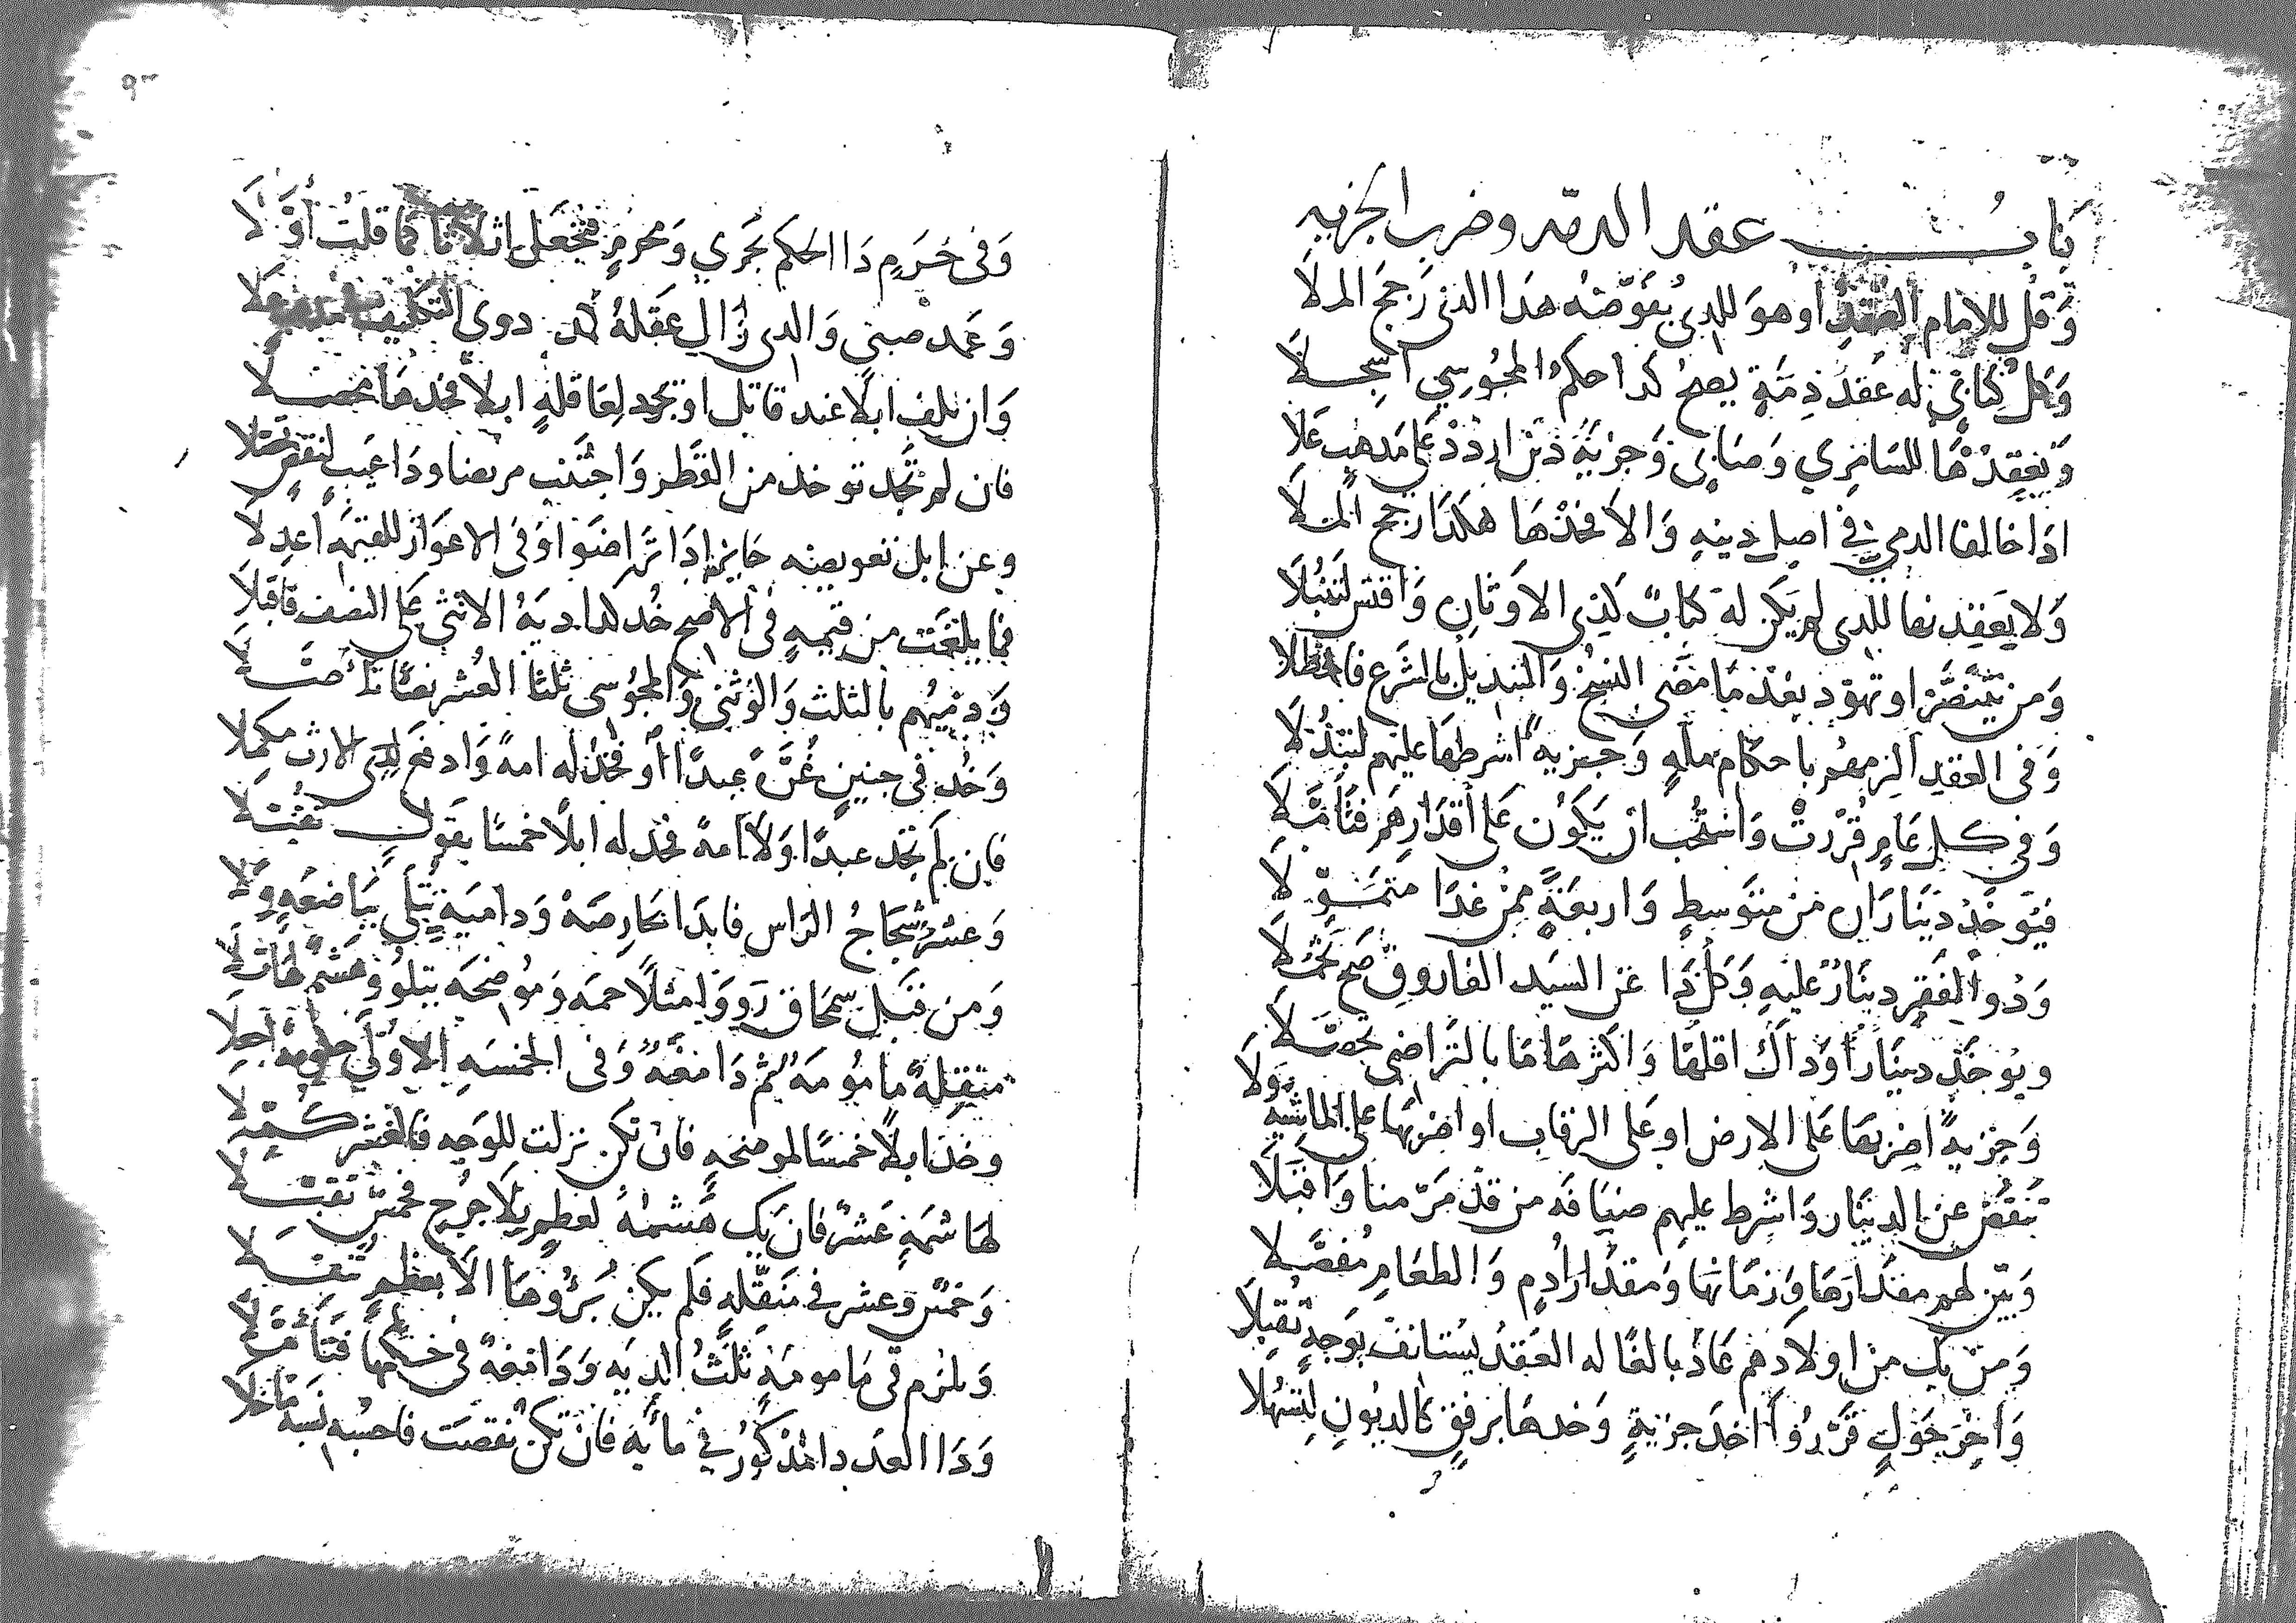 باب عقد الذمة وضرب الجزية
وقل للإمام العقد أو هو للذي يفوضه هذا الذي رجح الملا
وكل كتابي له عقد ذمة يصح كذا حكم المجوسي أسجلا
وتعقدها للسامري وصابي وجزية ذين اردد على مذهب علا
اذا خالفا الذمي في اصل دينه والا فخذها هكذا رجح الملا
ولا يعقدنها للذي لم يكن له كتاب كذي الاوثان واقتس لتنبلا
ومن يتنصر او تهود بعد ما مضى النسخ والتبديل بالشرع فاحظلا
وفي العقد الزمهم باحكام ملة وجزية اشرطها عليهم لتبذلا
وفي كل عام قررت واستحب ان يكون على اقدارهم فتأملا
فيوخذ ديناران من متوسط واربعة ممن غدا متمولا
وذوا الفقر دينار عليه وكل ذا عن السيد الفاروق صح
ويوخذ دينارا وذاك اقلها واكثرها ما بالتراضي تحصلا
وجزية اضربها على الارض او على الرقاب او اضربها على الماشية ولا
تنقص عن الدينار واشرط عليهم ضيافة من قد مر منا واقبلا
وبين لهم مقدارها وزمانها ومقدار أدم والطعام مفصلا
ومن يك من اولادهم عاد بالغا له العقد يستانف بوجه تقبلا
وآخر حول قرروا اخذ جزية وخذها برفق كالديون لتسهلا
٩٣
وفي حرم ذا الحكم يجري ومحرم فتجعل اثلاثا كما قلت أولا
وعمد صبي والذي زال عقله كمد ذوي التكليف
وان تلف ابلا عند قاتل او تجد لعاقلة ابلا فخذ ما تحصلا
فان لم تجد توخذ من القطر واجتنب مريضا وذا عيب لنقص
وعن ابل تعويضه جايز اذا تراضوا وفي الاعواز للقيمة اعدلا
فما بلغت من قيمة في الاصح خذ كذا دية الانثى على النصف فاقبلا
وذميهم بالثلث والوثني والمجوسي ثلثا العشر نصا تأصلا
وخذ في جنين غرة عبدا او فخذ له امة وادفع لذي الارث مكملا
فان لم تجد عبدا ولا امة فخذ له ابلا خمسا بقول تقبلا
وعشر شجاج الراس فابدا بحارصه ودامية تتلى بباضعة ولا
ومن قبل سمحاق رووا متلاحمه وموضحه يتلو وهشم لها تلا
منقلة مامومة ثم دامغة وفي الخمسه الاولى حكومة اجعلا
وخذ ابلا خمسا لموضحة فان تكن نزلت للوجه فالعشر كملا
لهاشمة عشر فان يك هشمه لعظم بلا جرح فخمس تقبلا
وخمس وعشر في منقلة فلم يكن برؤها الا بعظم تنقلا
ويلزم في مامومة ثلث الدية ودامغة في حكمها فتأملا
وذا العدد المذكور في مائة فان تكن نقصت فاحسبه نسبة